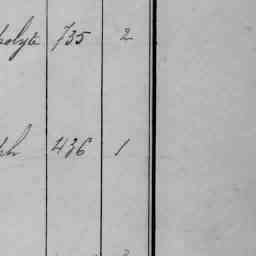 polyte 735 2
ph 436 1